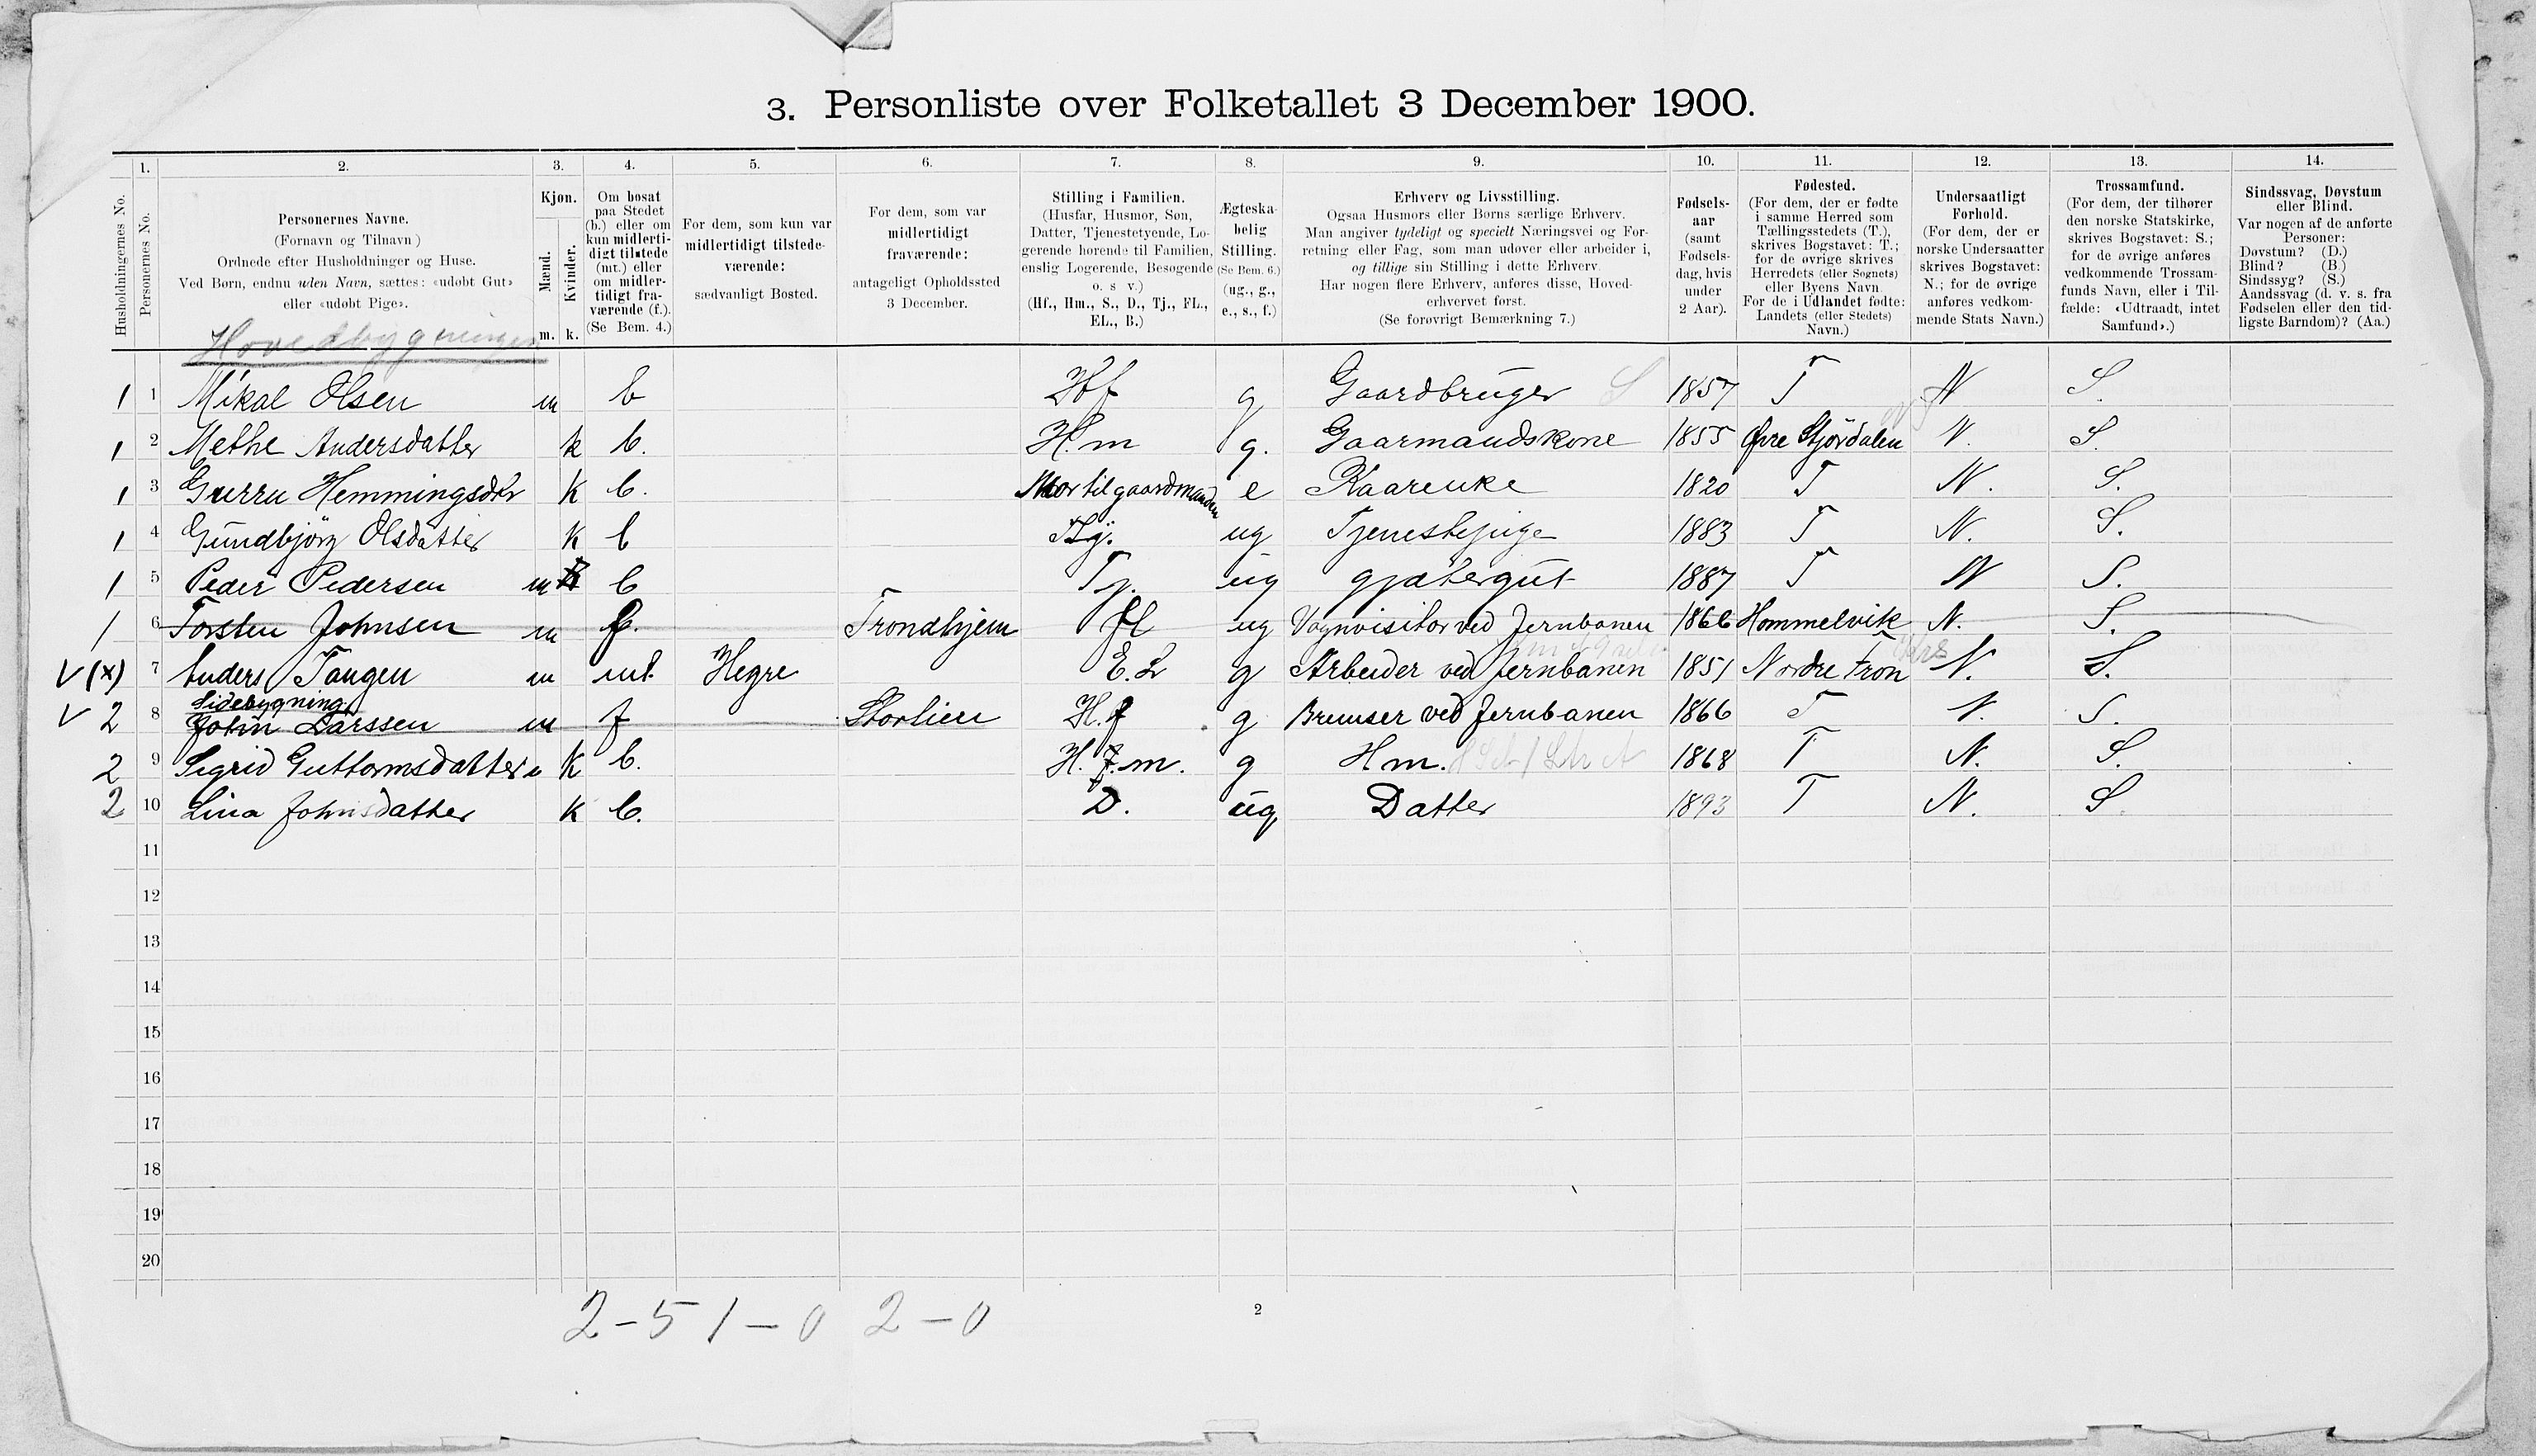 3. Personliste over Folketallet 3 December 1900.
1. 2. 3. 4. 5. 6. 7. 8. 9. 10. 11. 12. 13. 14.
Husholdningernes No.
Personernes No.
Personernes Navne.
(Fornavn og Tilnavn)
Ordnede efter Husholdninger og Huse.
Ved Børn, endnu uden Navn, sættes: «udøbt Gut»
eller «udøbt Pige».
Kjøn.
Mænd.
Kvinder.
m. k.
Om bosat
paa Stedet
(b.) eller om
kun midlerti-
digt tilstede
(mt.) eller
om midler-
tidigt fra-
værende (f.).
(Se Bem. 4.)
For dem, som kun var
midlertidigt tilstede-
værende:
sædvanligt Bosted.
For dem, som var
midlertidigt
fraværende:
antageligt Opholdssted
3 December.
Stilling i Familien.
(Husfar, Husmor, Søn,
Datter, Tjenestetyende, Lo-
gerende hørende til Familien,
enslig Logerende, Besøgende
o. s. v.)
(Hf., Hm., S., D., Tj., FL.,
EL., B.)
Ægteska-
belig
Stilling.
(Se Bem. 6.)
(ug., g.,
e., s., f.)
Erhverv og Livsstilling.
Ogsaa Husmors eller Børns særlige Erhverv.
Man angiver tydeligt og specielt Næringsvei og For-
retning eller Fag, som man udøver eller arbeider i,
og tillige sin Stilling i dette Erhverv.
Har nogen flere Erhverv, anføres disse, Hoved-
erhvervet først.
(Se forøvrigt Bemærkning 7.)
Fødsels-
aar
(samt
Fødsels-
dag, hvis
under
2 Aar).
Fødested.
(For dem, der er fødte
i samme Herred som
Tællingsstedets (T.),
skrives Bogstavet: T.;
for de øvrige skrives
Herredets (eller Sognets)
eller Byens Navn.
For de i Udlandet fødte:
Landets (eller Stedets)
Navn.)
Undersaatligt
Forhold.
(For dem, der er
norske Undersaatter
skrives Bogstavet:
N.; for de øvrige
anføres vedkom-
mende Stats Navn.)
Trossamfund.
(For dem, der tilhører
den norske Statskirke,
skrives Bogstavet: S.;
for de øvrige anføres
vedkommende Trossam-
funds Navn, eller i Til-
fælde: «Udtraadt, intet
Samfund».)
Sindssvag, Døvstum
eller Blind.
Var nogen af de anførte
Personer:
Døvstum? (D.)
Blind? (B.)
Sindssyg? (S.)
Aandssvag (d. v. s. fra
Fødselen eller den tid-
ligste Barndom)? (Aa.)
Hovedbygningen
1 1 Mikal Olsen m b Hf g Gaardbruger S 1857 T N S.
1 2 Methe Andersdatter k b. H.m g. Gaarmandskone 1855 Øvre Stjördalen N. S.
1 3 Gurru Hemmingsdtr K b. Mor til gaardmanden e Kaarenke 1820 T N. S.
1 4 Gundbjörg Olsdatter K b Tj. ug Tjenestepige 1883 T N. S.
1 5 Peder Pedersen m b Tj. ug gjætergut 1887 T N S.
1 6 Torsten Johnsen m f. Trondhjem fl ug Vognvisitor ved Jernbanen 1866 Hommelvik N. S.
V (x) 7 Anders Tangen m mt. Hegre E.L g Arbeider ved Jernbanen 1851 Nordre Fron N. S.
Sidebygning
V 2 8 John Larssen m f Storlien H.f g Bremser ved Jernbanen 1866 T N. S.
2 9 Sigrid Guttormsdatter K b. H.f.m. g Hm. 1868 T N. S.
2 10 Lina Johnsdatter K b. D. ug Datter 1893 T N. S.
11
12
13
14
15
16
17
18
19
20
2-5 1-0 2-0
2